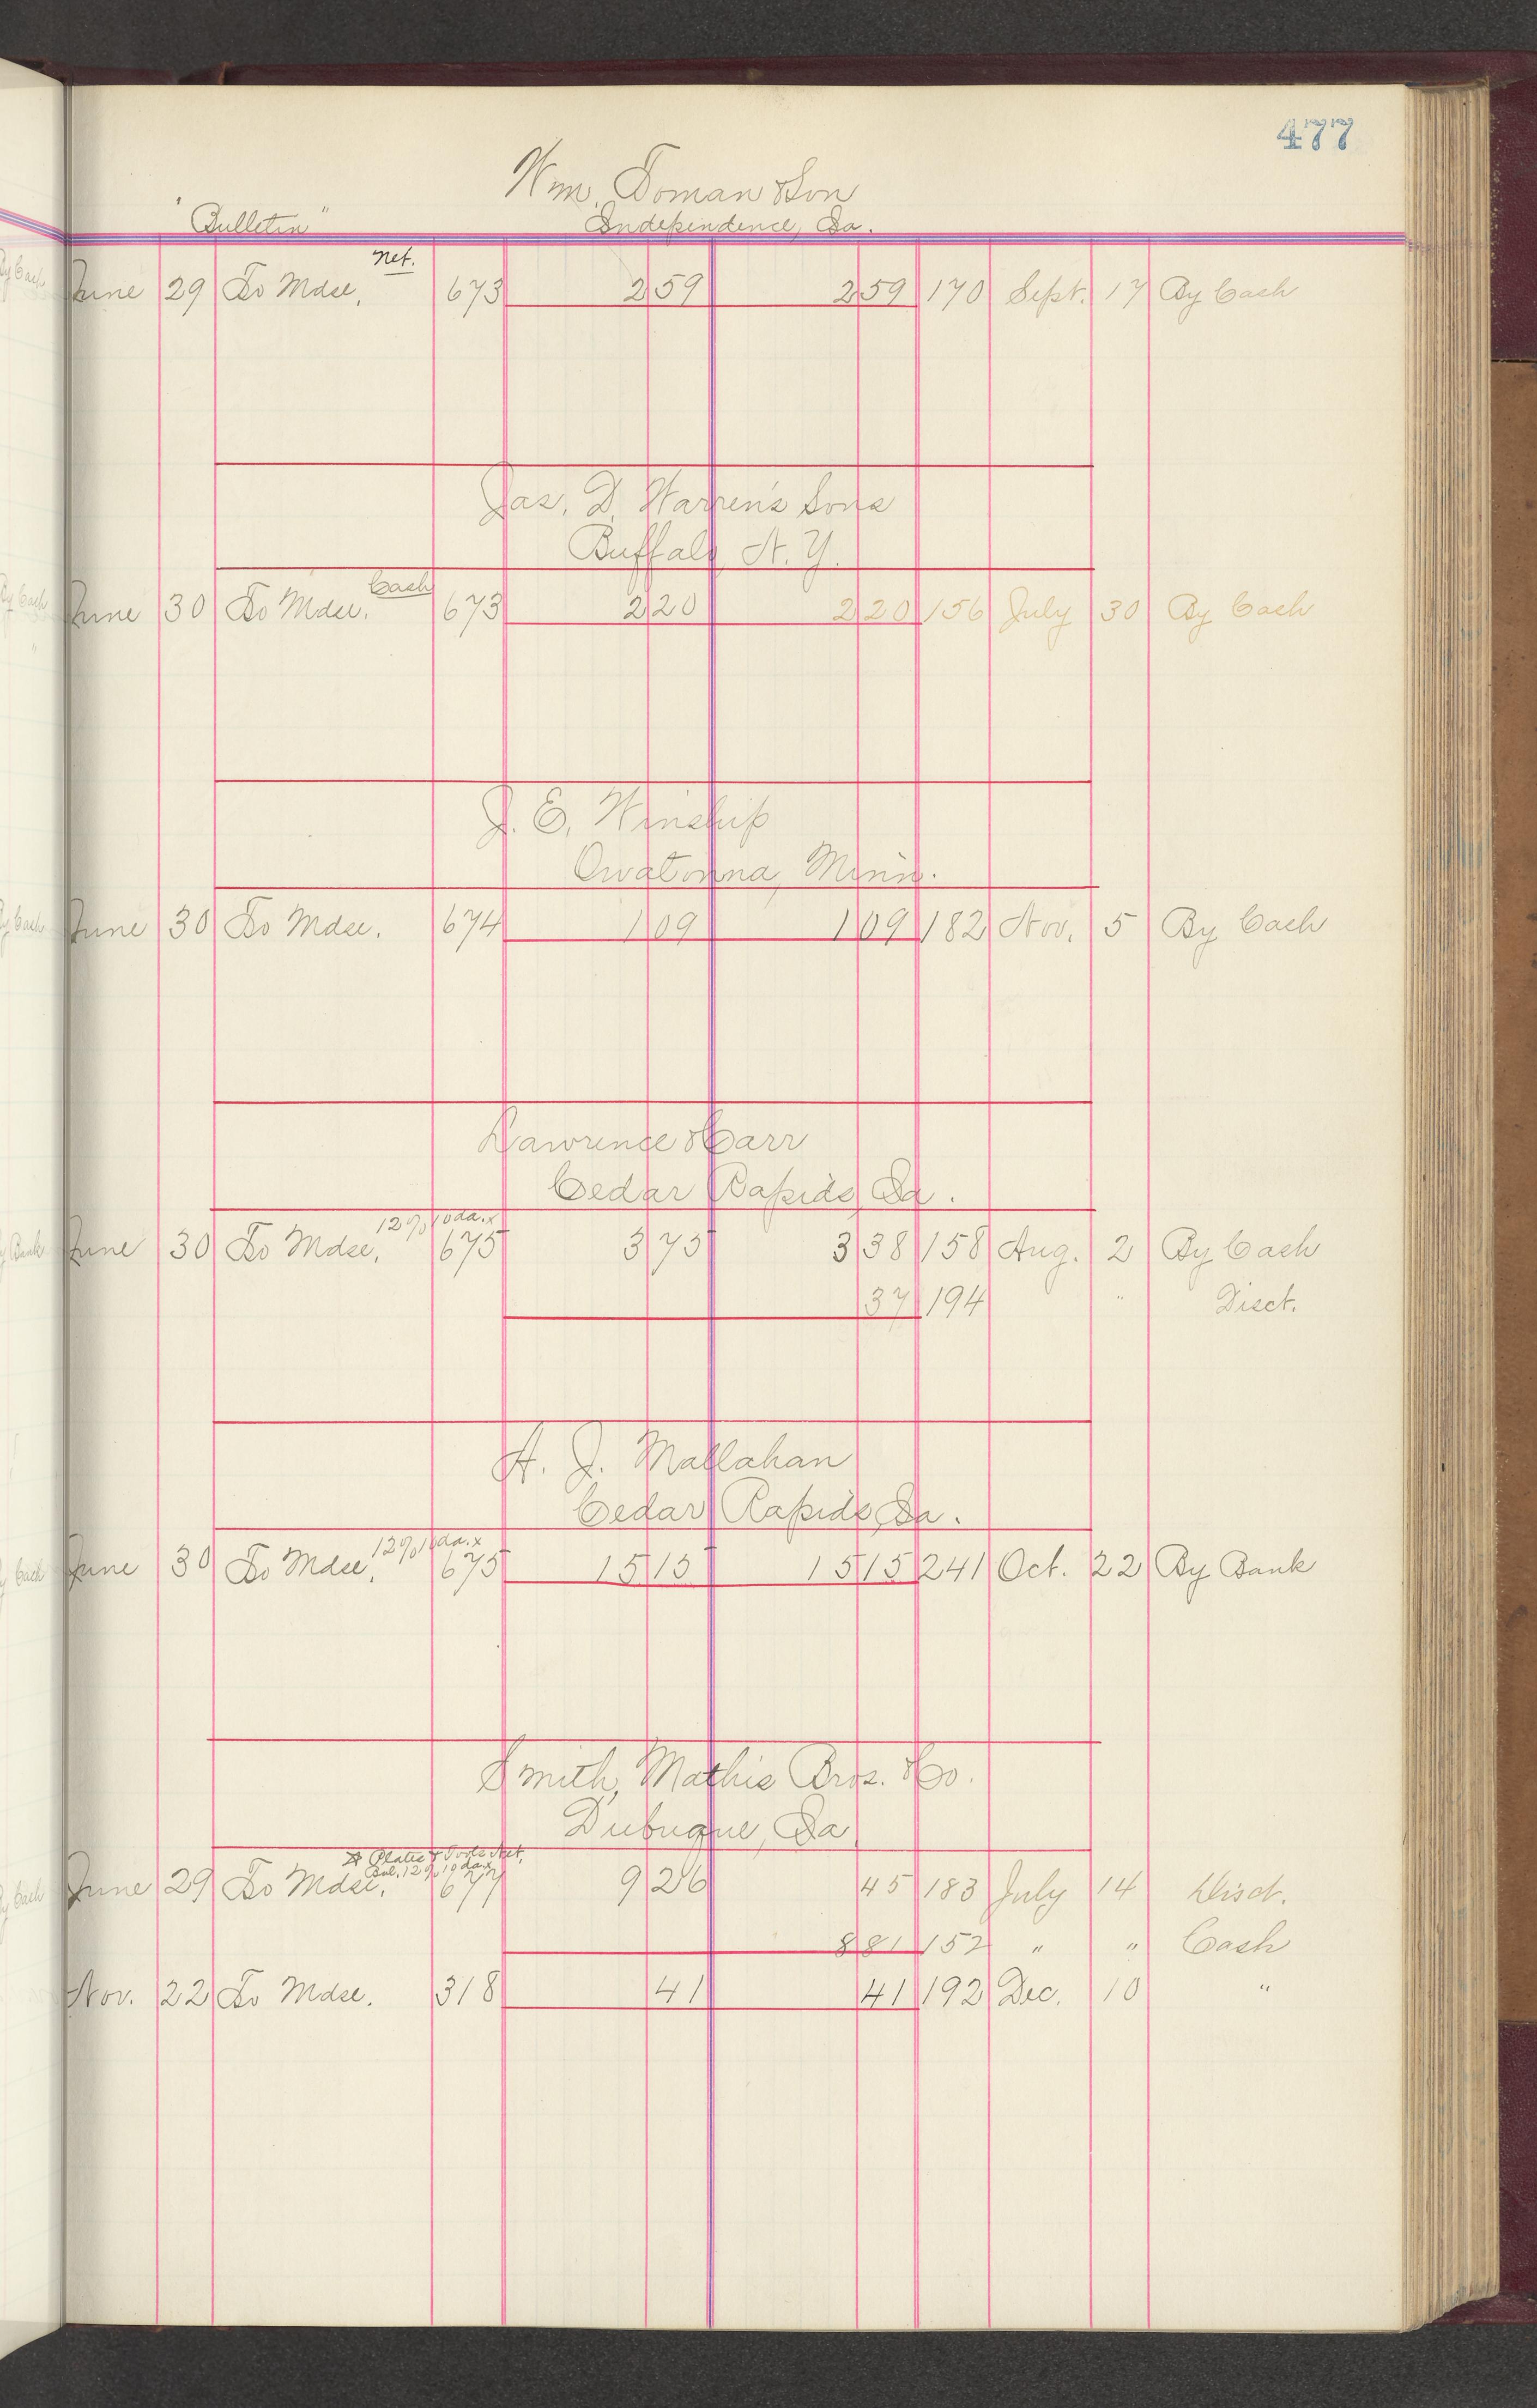 477
Wm. Toman & Son
"Bulletin" Independence, Ia.
net.
June 29 To Mdse. 673 2 59 2 59 170 Sept. 17 By Cash
Jas. D. Warren's Sons
Buffalo N. Y.
Cash
June 30 To Mdse. 673 2 20 2 20 156 July 30 By Cash
J. E. Winship
Owatonna, Minn.
June 30 To Mdse. 674 1 09 1 09 182 Nov. 5 By Cash
Lawrence & Carr
Cedar Rapids, Ia.
12% 10 da. x
June 30 To Mdse. 675 3 75 3 38 158 Aug. 2 By Cash
37 194 " Disct.
A. J. Mallahan
Cedar Rapids, Ia.
12% 10 da. x
June 30 To Mdse. 675 15 15 15 15 241 Oct. 22 By Bank
Smith, Mathis Bros. & Co.
Dubuque, Ia.
Plates & Tools Net.
Bal. 12% 10 da x
June 29 To Mdse. 677 9 26 45 183 July 14 Disct.
8 81 152 " " Cash
Nov. 22 To Mdse. 318 41 41 192 Dec. 10 "